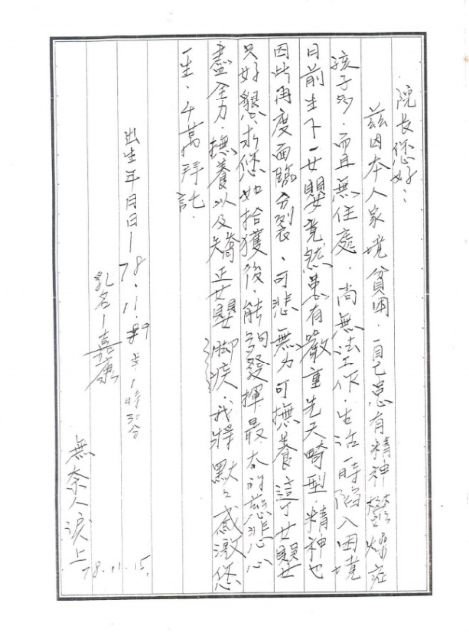 院長您好:
茲因本人家境貧困.自己患有精神躁症
孩子多.而且無住處.尚無法工作.生活一時陷入困境
日前生下一女嬰竟然患有嚴重先天畸型.精神也
因此再度面臨分裂.可悲無力可撫養這個女嬰
只好懇求您如拾獲後.能夠發揮最大的慈悲心
盡全力.撫養以及矯正女嬰腳疾.我將默默感激您
一生.千萬拜託.
出生年月日—78.11.
乳名—
無奈人淚上
78.11.15.